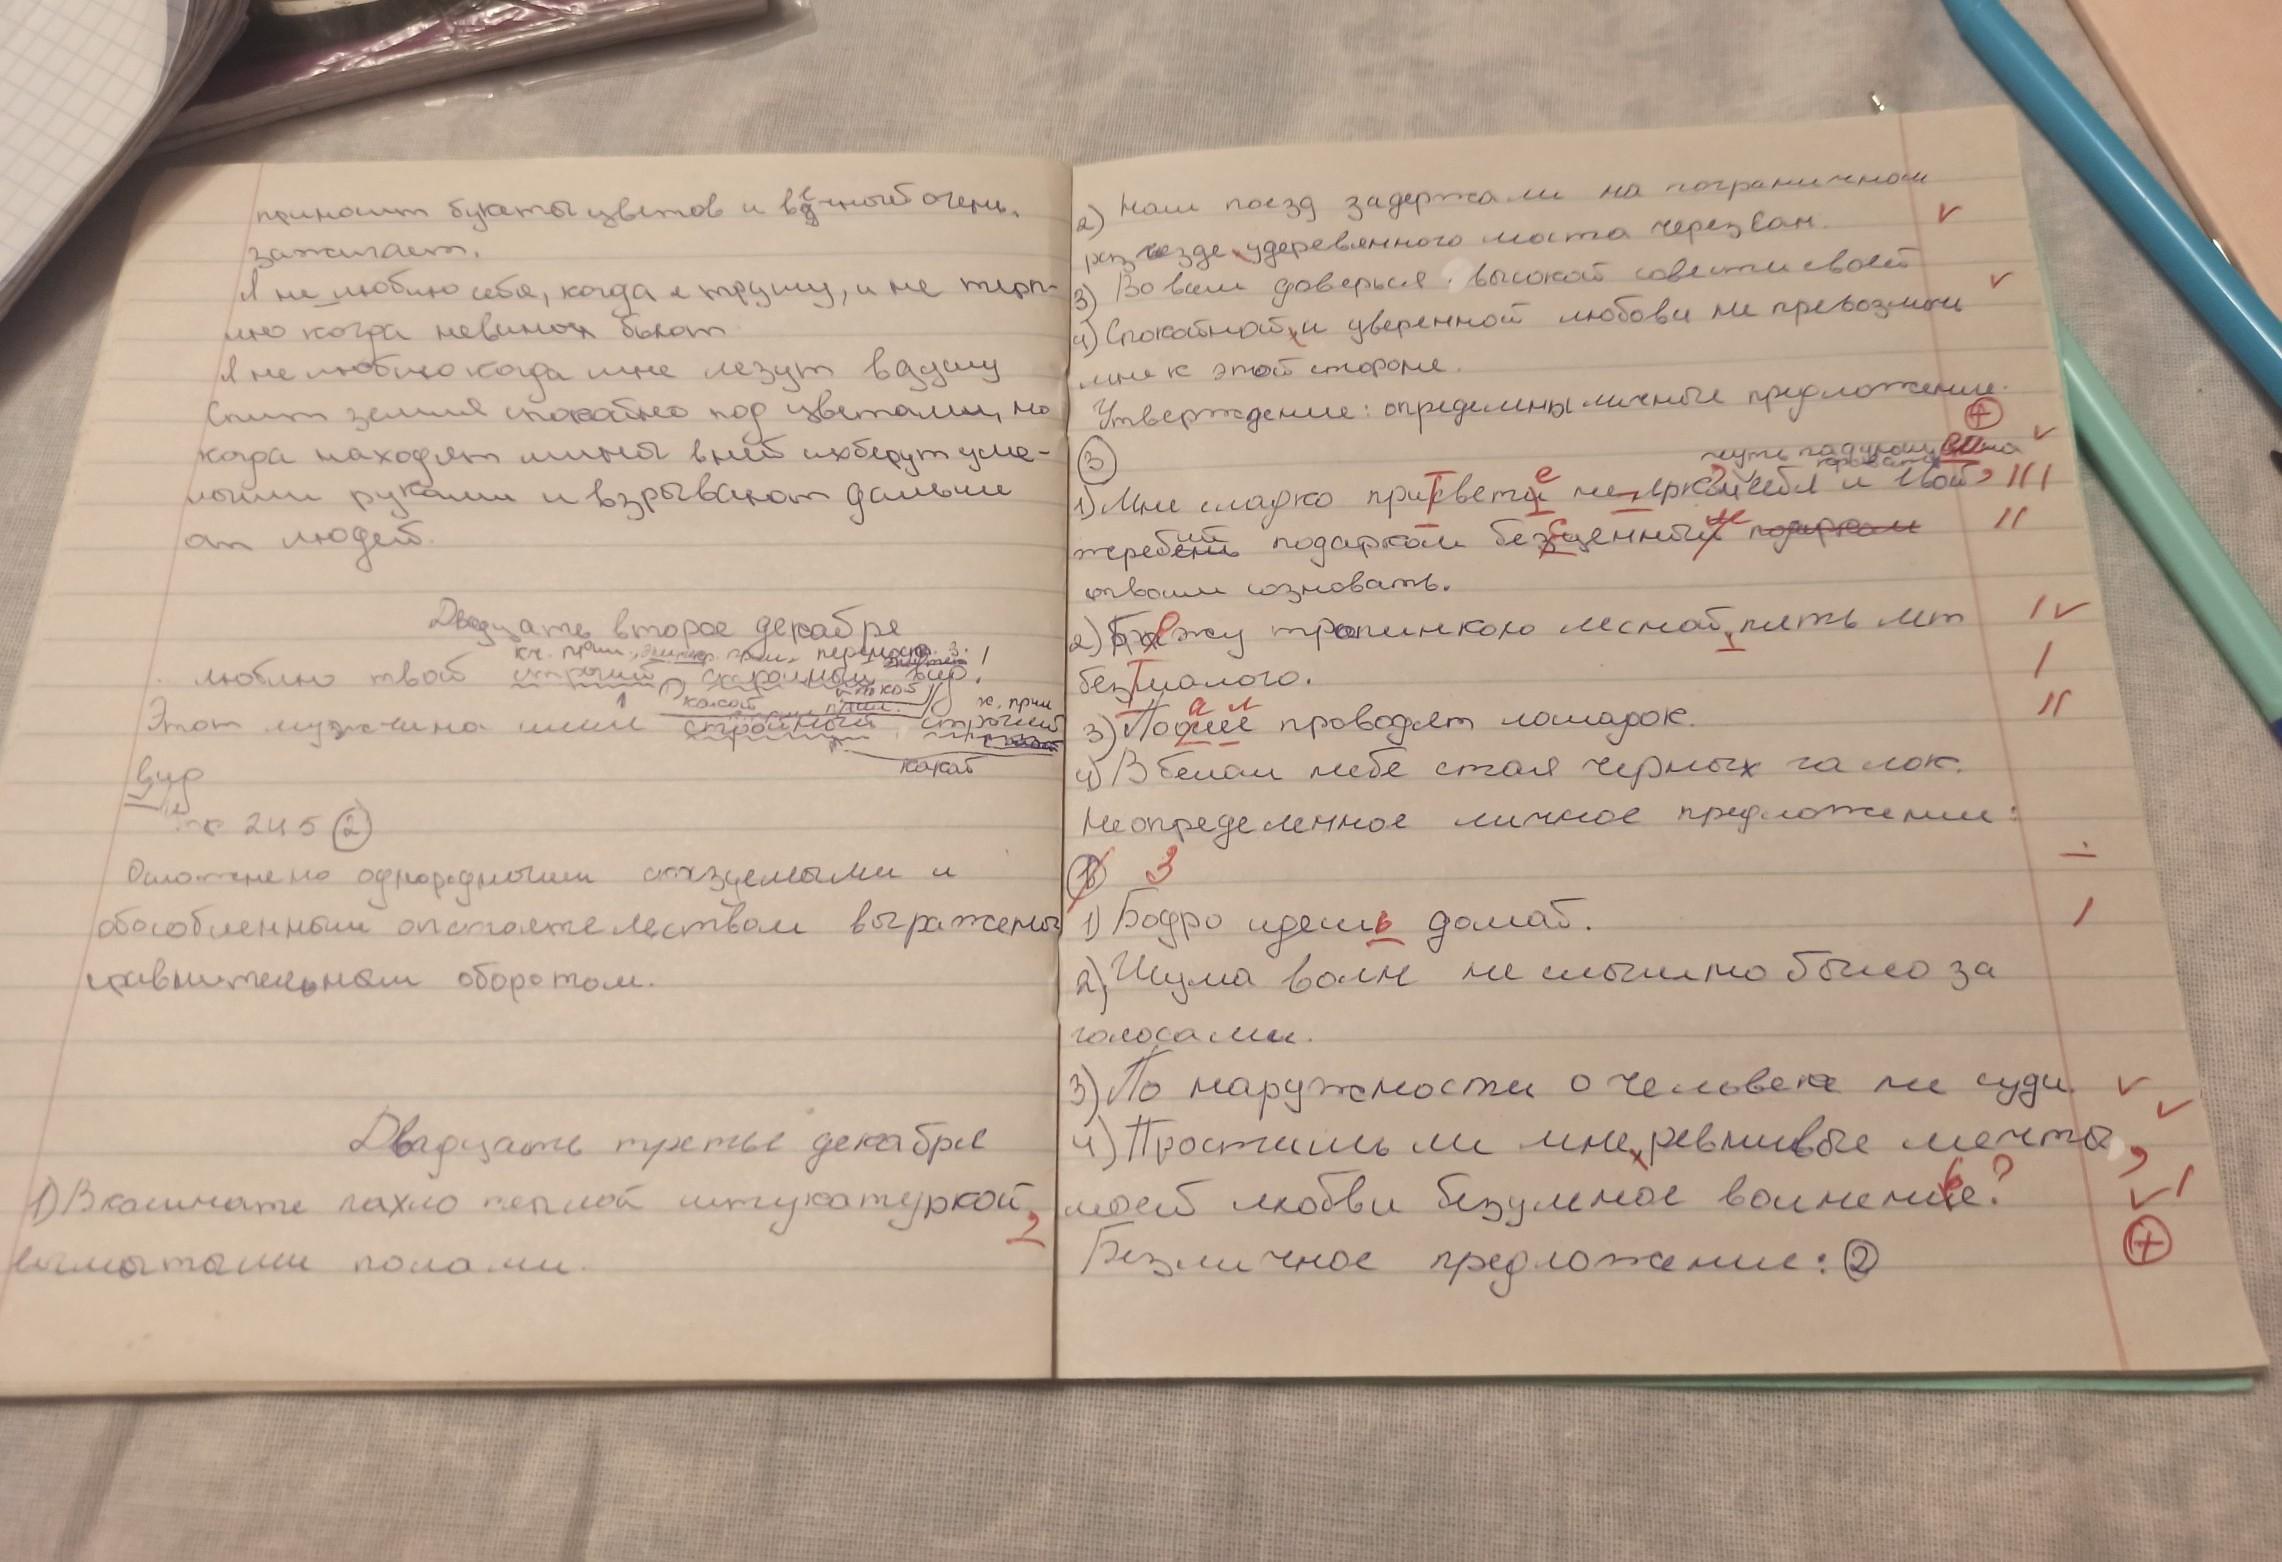 приносит букеты цветов и вечный огень.
зажигает.
Я не люблю себя, когда я трушу, и не терп-
лю когда невинных бьют
Я не люблю когда мне лезут в душу
Спит земля спокойно под цветами, но
когда находят мины в ней их берут уме-
лыми руками и взрывают дальше
от людей.
Двадцать второе декабря
кч. прил., прил. перенос. з.
люблю твой строгий, стройный вид.
какой
к. прил
Этот мужчина имел стройный, строгий
какой
вид
245 (2)
Осложнено однородными сказуемыми и
обособленным обстоятельством выражены
сравнительным оборотом.
Двадцать третье декабря
1) В комнате пахло теплой штукатуркой,
вымытыми полами.
2) Наш поезд задержали на пограничном
разъезде у деревянного моста через Сан.
3) Во всем доверься высокой совести своей
4) Спокойной и уверенной любови не превозмочь
мне к этой стороне.
Утверждение: определены личные предложение.
(3)
1) Мне сладко при свете неярком себя и твой
жребий подарком бесценный подарком
твоим сознавать.
2) Бежу тропинкою лесной, пять лет
без малого.
3) проводят помарок.
4) В белом небе стая черных галок.
Неопределенное личное предложение:
3
1) Бодро идешь домой.
2) Шума волн не слышно было за
голосами.
3) По наружности о человеке не суди.
4) Простишь ли мне ревнивые мечты,
моей любви безумное волнение?
Безличное предложение: (2)